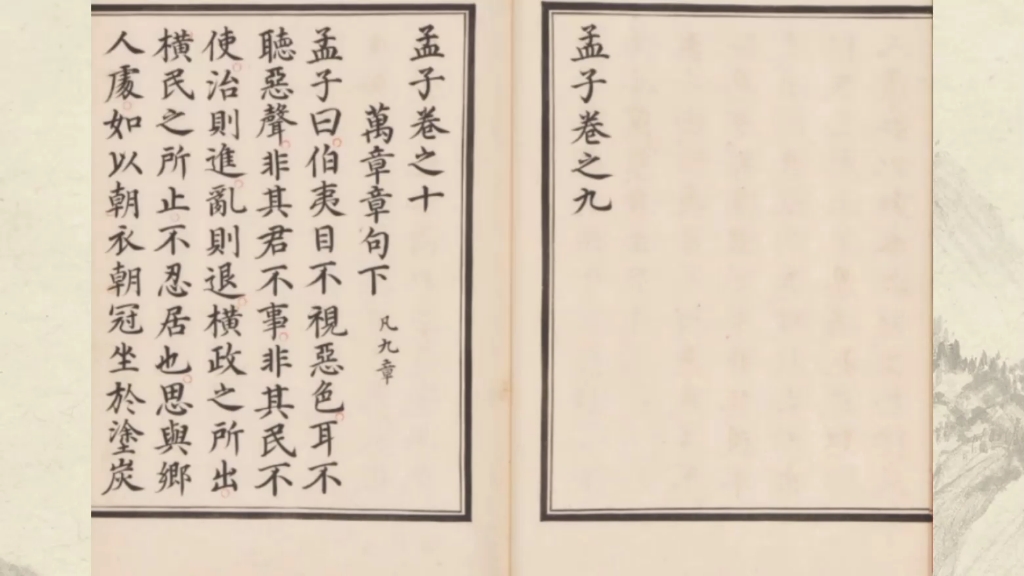 孟子卷之九
孟子卷之十
萬章章句下 凡九章
孟子曰伯夷目不視惡色耳不
聽惡聲非其君不事非其民不
使治則進亂則退橫政之所出
橫民之所止不忍居也思與鄉
人處如以朝衣朝冠坐於塗炭